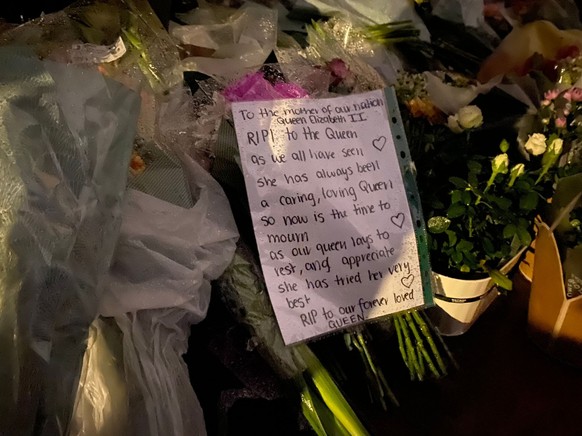 To the mother of our nation
Queen Elizabeth II
RIP! to the Queen
as we all have seen
she has always been
a caring, loving Queen
so now is the time to
mourn
as our queen lays to
rest, and appreciate
she has tried her very
best
RIP to our forever loved
QUEEN